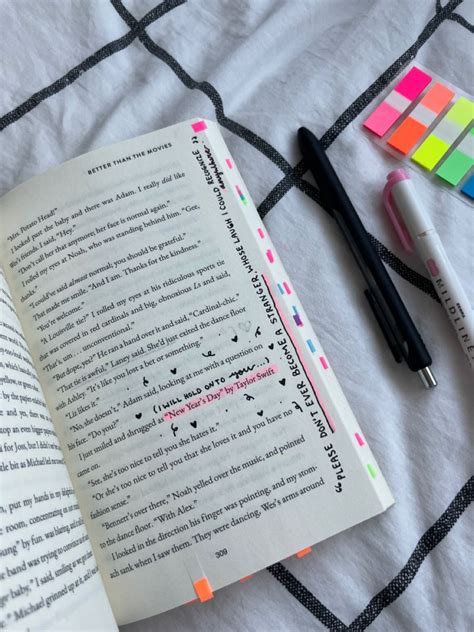 BETTER THAN THE MOVIES
"Mrs. Potato Head!"
I looked past the baby and there was Adam. I really did like
Wes's friends. I said, "Hey."
"Don't call her that anymore; her face is normal again."
I rolled my eyes at Noah, who was standing behind him. "Gee,
thanks."
"I could've said almost normal; you should be grateful."
That made me smile. "And I am. Thanks for the kindness."
"You're welcome."
"A Louisville tie?" I rolled my eyes at his ridiculous sports tie
that was covered in red cardinals and big, obnoxious Ls and said,
"That's, um . . . unconventional."
"But dope, yes?" He ran a hand over it and said, "Cardinal-chic."
"That tie is awful." Laney said. She'd just exited the dance floor
with Ashley. "It's like you lost a bet or something."
"Liz likes it."
"No, she doesn't," Adam said, looking at me with a question on
his face. "Do you?"
(I WILL HOLD ONTO YOU...)
I just smiled and shrugged as "New Year's Day" by Taylor Swift
came on.
"See, she's too nice to tell you she hates it."
"Or she's too nice to tell you that she loves it and you have no
fashion sense."
"Bennett's over there," Noah yelled over the music, and pointed
to the dance floor. "With Alex."
I looked in the direction his finger was pointing, and my stom-
ach sank when I saw them. They were dancing. Wes's arms around
309
"PLEASE DON'T EVER BECOME A STRANGER, WHOSE LAUGH I COULD RECOGNIZE
anywhere."
put my hand in my
room, concerning
for Joss, but I did
but Michael
was trying to
and said,
Michael grinned up at
MILDLINER